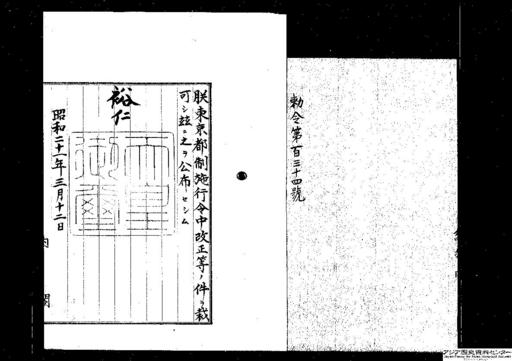 勅令第百三十四號
朕東京都制施行令中改正等ノ件ヲ裁
可シ茲ニ之ヲ公布セシム
裕仁
天皇
御璽
昭和二十一年三月十二日
内閣
アジア歴史資料センター